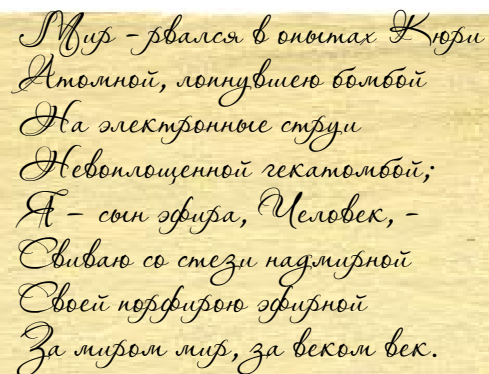 Мир – рвался в опытах Кюри
Атомной, лопнувшею бомбой
На электронные струи
Невоплощенной гекатомбой;
Я – сын эфира, Человек, –
Свиваю со стези надмирной
Своей порфирою эфирной
За миром мир, за веком век.